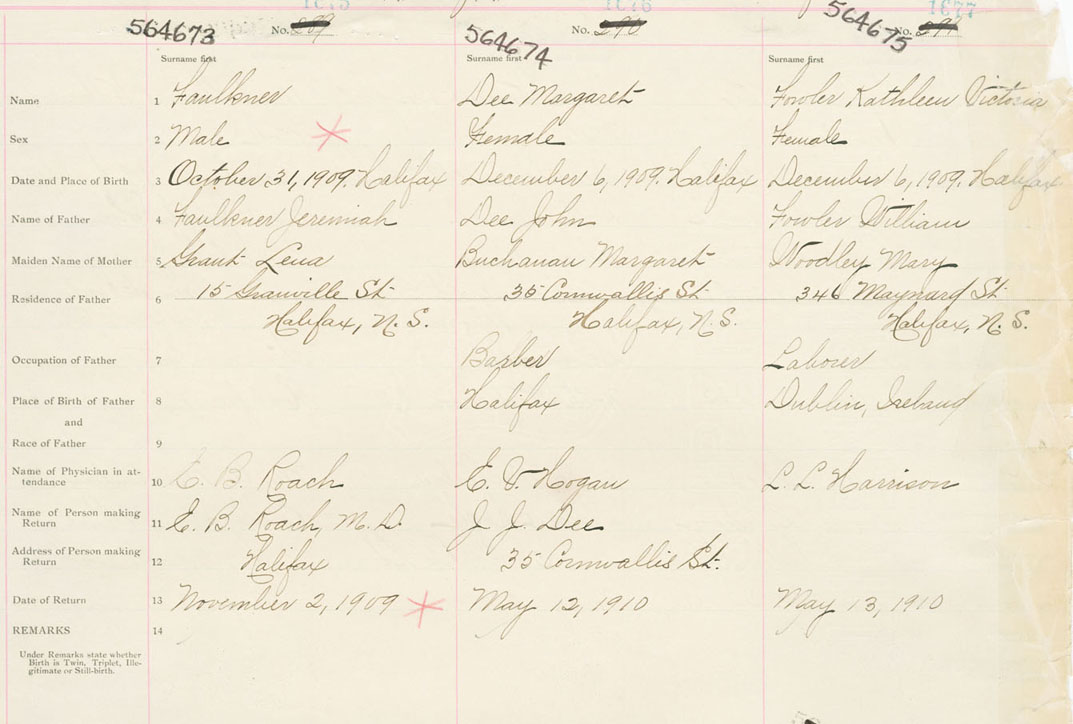 1675 1676 1677
564673 No. 289 564674 No. 290 564675 No. 291
Surname first Surname first Surname first
Name 1 Faulkner Dee Margaret Fowler Kathleen Victoria
Sex 2 Male Female Female
Date and Place of Birth 3 October 31, 1909. Halifax December 6, 1909. Halifax December 6, 1909. Halifax
Name of Father 4 Faulkner Jeremiah Dee John Fowler William
Maiden Name of Mother 5 Grant Lena Buchanan Margaret Woodley Mary
Residence of Father 6 15 Granville St 35 Cornwallis St 346 Maynard St
Halifax, N. S. Halifax, N. S. Halifax, N. S.
Occupation of Father 7 Barber Laborer
Place of Birth of Father 8 Halifax Dublin, Ireland
and
Race of Father 9
Name of Physician in at-
tendance 10 E. B. Roach E. V. Hogan L. L. Harrison
Name of Person making
Return 11 E. B. Roach, M. D. J. J. Dee
Address of Person making
Return 12 Halifax 35 Cornwallis St.
Date of Return 13 November 2, 1909 May 12, 1910 May 13, 1910
REMARKS 14
Under Remarks state whether
Birth is Twin, Triplet, Ille-
gitimate or Still-birth.